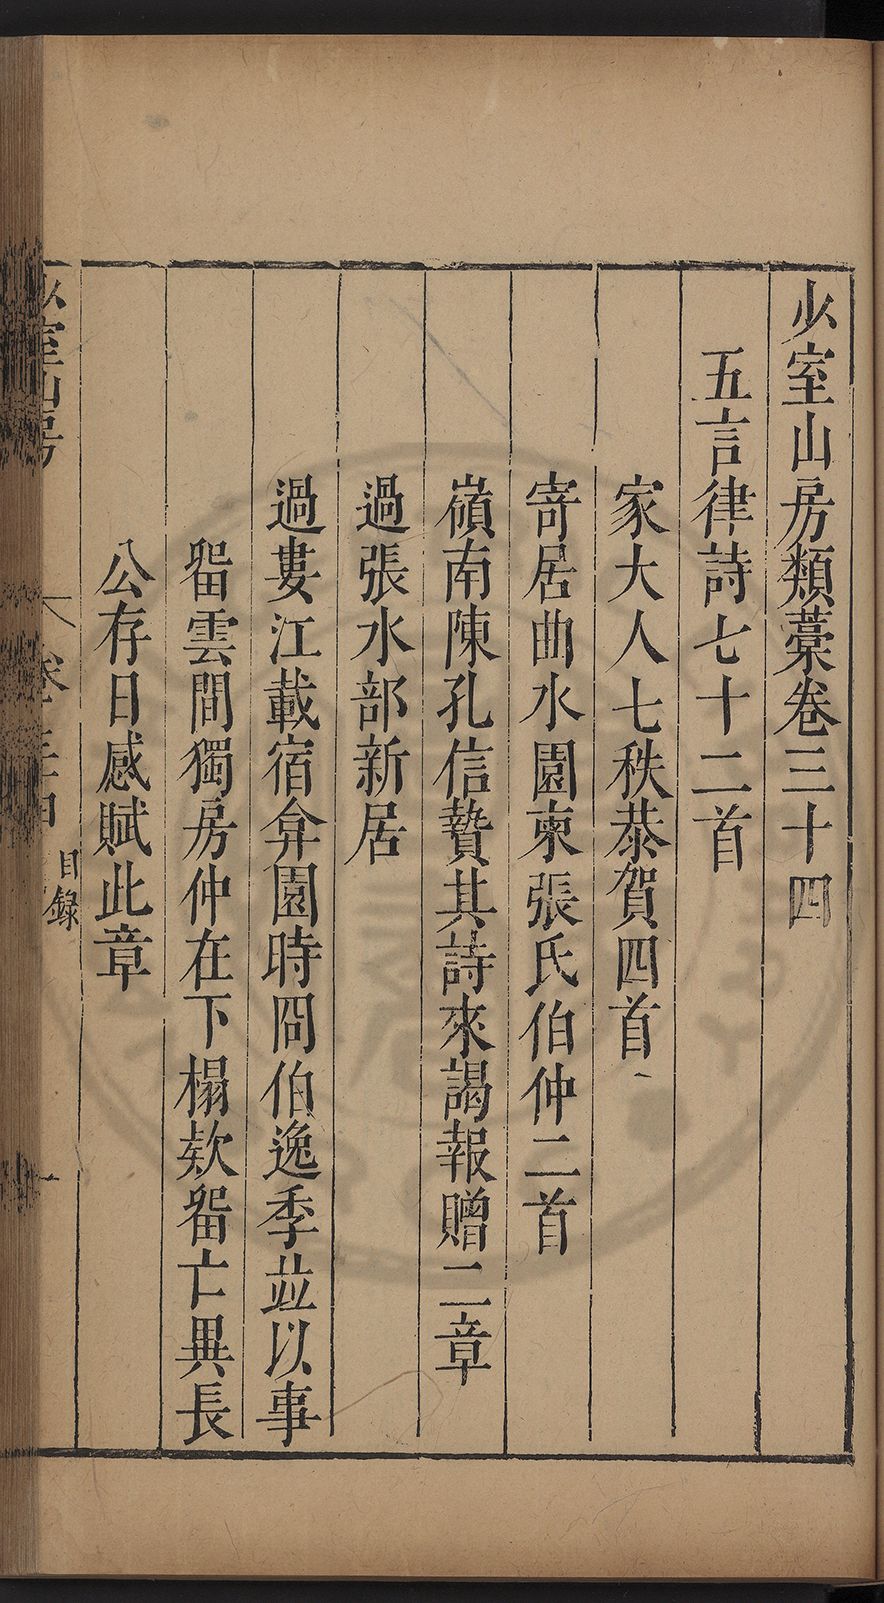 少室山房類藁卷三十四
五言律詩七十二首
家大人七秩恭賀四首
寄居曲水園柬張氏伯仲二首
嶺南陳孔信贄其詩來謁報贈二章
過張水部新居
過婁江載宿弇園時冏伯逸季並以事
畱雲間獨房仲在下榻欵畱亡異長
公存日感賦此章
少室山房
卷三十四
目錄
一